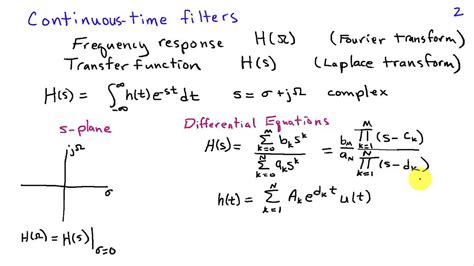 Continuous-time filters 2
Frequency response H(Ω) (Fourier transform)
Transfer Function H(s) (Laplace transform)
H(s) = ∫_{-∞}^{∞} h(t)e^{-st}dt s = σ + jΩ complex
s-plane
jΩ
σ
H(Ω) = H(s)|_{σ=0}
Differential Equations
H(s) = \frac{\sum_{k=0}^{M} b_k s^k}{\sum_{k=0}^{N} a_k s^k} = \frac{b_M}{a_N} \frac{\prod_{k=1}^{M} (s-c_k)}{\prod_{k=1}^{N} (s-d_k)}
h(t) = \sum_{k=1}^{N} A_k e^{d_k t} u(t)